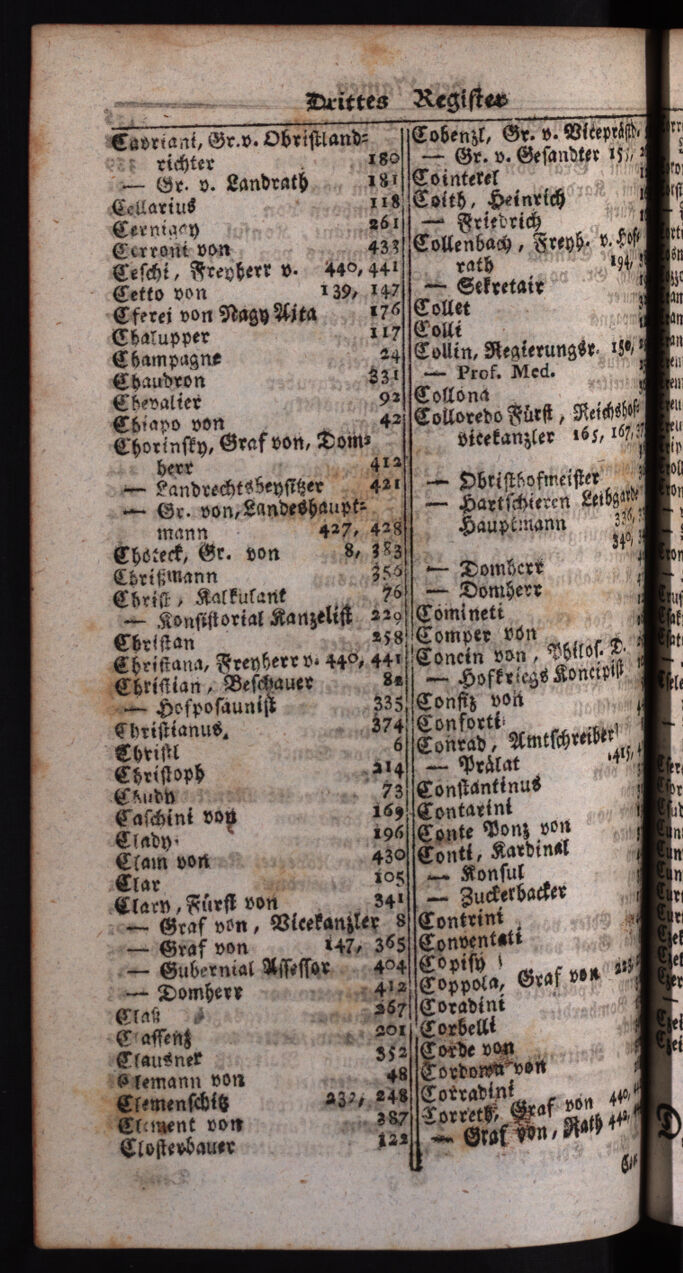 Drittes Register
Cavriani, Gr. v. Obristland=
richter 180
— Gr. v. Landrath 181
Cellarius 118
Cernigoy 261
Cerroni von 433
Ceschi, Freyherr v. 440, 441
Cetto von 139, 147
Cferei von Nagy Aita 176
Chalupper 117
Champagne 24
Chaudron 331
Chevalier 92
Chiapo von 42
Chorinsky, Graf von, Dom=
herr 412
— Landrechtsbeysitzer 421
— Gr. von, Landeshaupt=
mann 427, 428
Choteck, Gr. von 8, 383
Chrißmann 356
Christ, Kalkulant 76
— Konsistorial Kanzelist 229
Christan 258
Christana, Freyherr v. 440, 441
Christian, Beschauer 82
— Hofposaunist 335
Christianus 374
Christl 6
Christoph 214
Chudy 73
Caschini von 169
Clady 196
Clam von 430
Clar 105
Clary, Fürst von 341
— Graf von, Vicekanzler 8
— Graf von 147, 365
— Gubernial Assessor 404
— Domherr 412
Claß 267
Classenz 201
Clausner 352
Clemann von 48
Clemenschitz 232, 248
Clement von 387
Closterbauer 122
Cobenzl, Gr. v. Vicepräsid.
— Gr. v. Gesandter
Cointerel
Coith, Heinrich
— Friedrich
Collenbach, Freyh. v. Hof
rath 194,
— Sekretair
Collet
Colli
Collin, Regierungsr. 150,
— Prof. Med.
Collona
Colloredo Fürst, Reichshof
vicekanzler 165, 167,
— Obristhofmeister
— Hartschieren Leibgarde
Hauptmann
340,
— Domherr
— Domherr
Comineti
Comper von
Concin von, Philos. D.
— Hofkriegs Koncipist
Consiz von
Conforti
Conrad, Amtschreiber
— Prälat 415,
Constantinus
Contarini
Conte Ponz von
Conti, Kardinal
— Konsul
— Zuckerbacker
Contrini
Conventati
Copisy
Coppola, Graf von
Coradini
Corbelli
Corde von
Cordown von
Corradini
Correth, Graf von 440,
— Graf von, Rath 442,